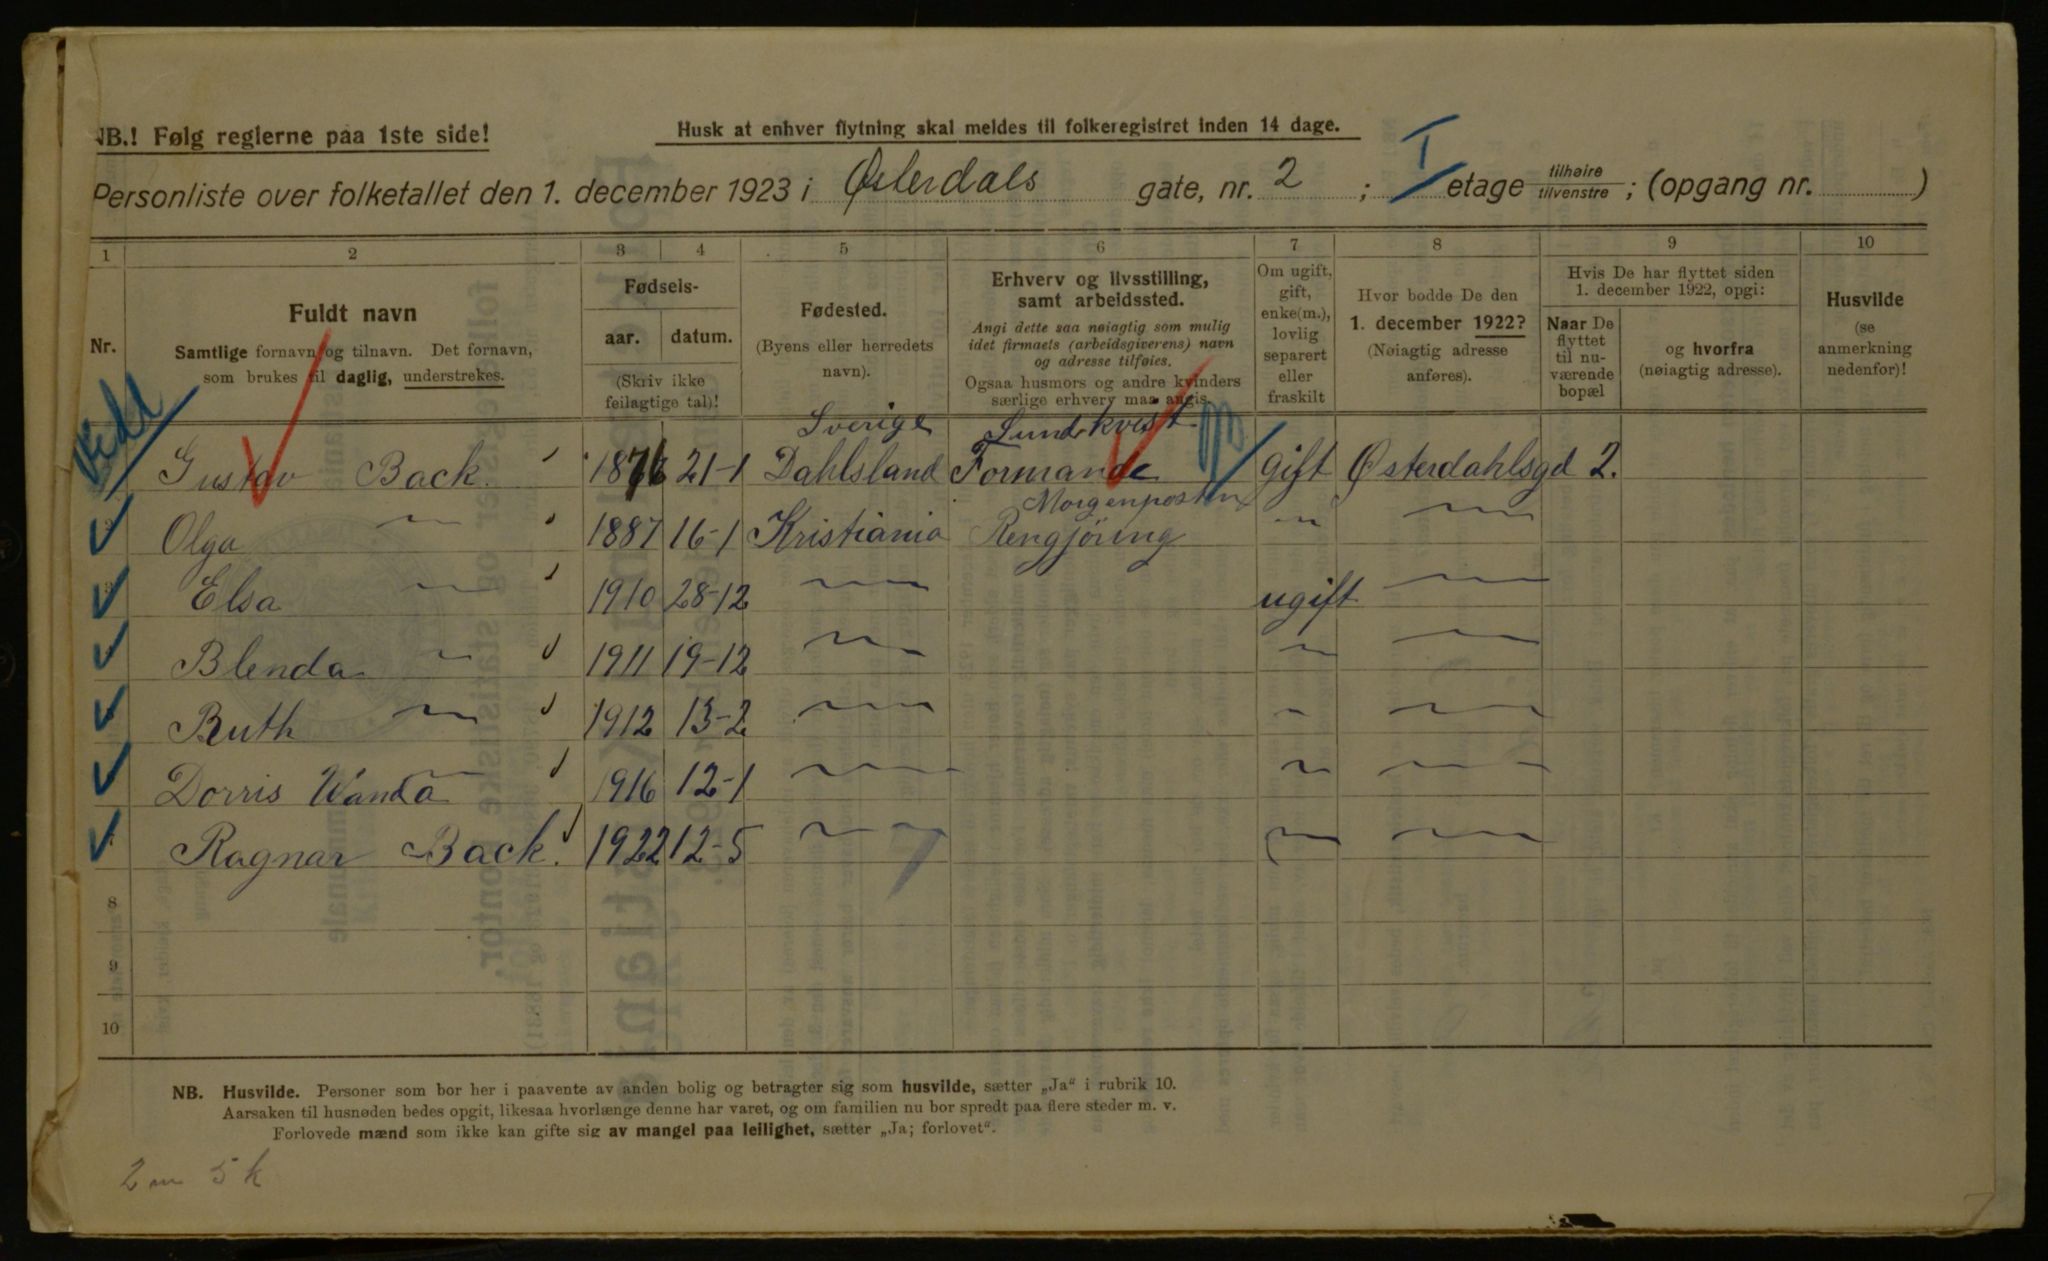 NB.! Følg reglerne paa 1ste side!
Husk at enhver flytning skal meldes til folkeregistret inden 14 dage.
Personliste over folketallet den 1. december 1923 i Østerdals gate, nr. 2 ; I etage tilhøire tilvenstre ; (opgang nr. )
1 2 3 4 5 6 7 8 9 10
Nr.
Fuldt navn
Samtlige fornavn og tilnavn. Det fornavn,
som brukes til daglig, understrekes.
Fødsels-
aar. datum.
(Skriv ikke
feilagtige tal)!
Fødested.
(Byens eller herredets
navn).
Erhverv og livsstilling,
samt arbeidssted.
Angi dette saa nøiagtig som mulig
idet firmaets (arbeidsgiverens) navn
og adresse tilføies.
Ogsaa husmors og andre kvinders
særlige erhverv maa angis.
Om ugift,
gift,
enke(m.),
lovlig
separert
eller
fraskilt
Hvor bodde De den
1. december 1922?
(Nøiagtig adresse
anføres).
Hvis De har flyttet siden
1. december 1922, opgi:
Naar De
flyttet
til nu-
værende
bopæl
og hvorfra
(nøiagtig adresse).
Husvilde
(se
anmerkning
nedenfor)!
Sverige Lundkvist
Gustav Back 1876 21-1 Dahlsland Formand gift Østerdahlsgd 2.
Morgenposten
Olga — 1887 16-1 Kristiania Rengjöring — —
Elsa — 1910 28-12 — ugift —
Blenda — 1911 19-12 — — —
Ruth — 1912 13-2 — — —
Dorris Wanda — 1916 12-1 — — —
Ragnar Back. 1922 12-5 — — —
8
9
10
NB. Husvilde. Personer som bor her i paavente av anden bolig og betragter sig som husvilde, sætter „Ja" i rubrik 10.
Aarsaken til husnøden bedes opgit, likesaa hvorlænge denne har varet, og om familien nu bor spredt paa flere steder m. v.
Forlovede mænd som ikke kan gifte sig av mangel paa leilighet, sætter „Ja; forlovet".
2 m 5 k